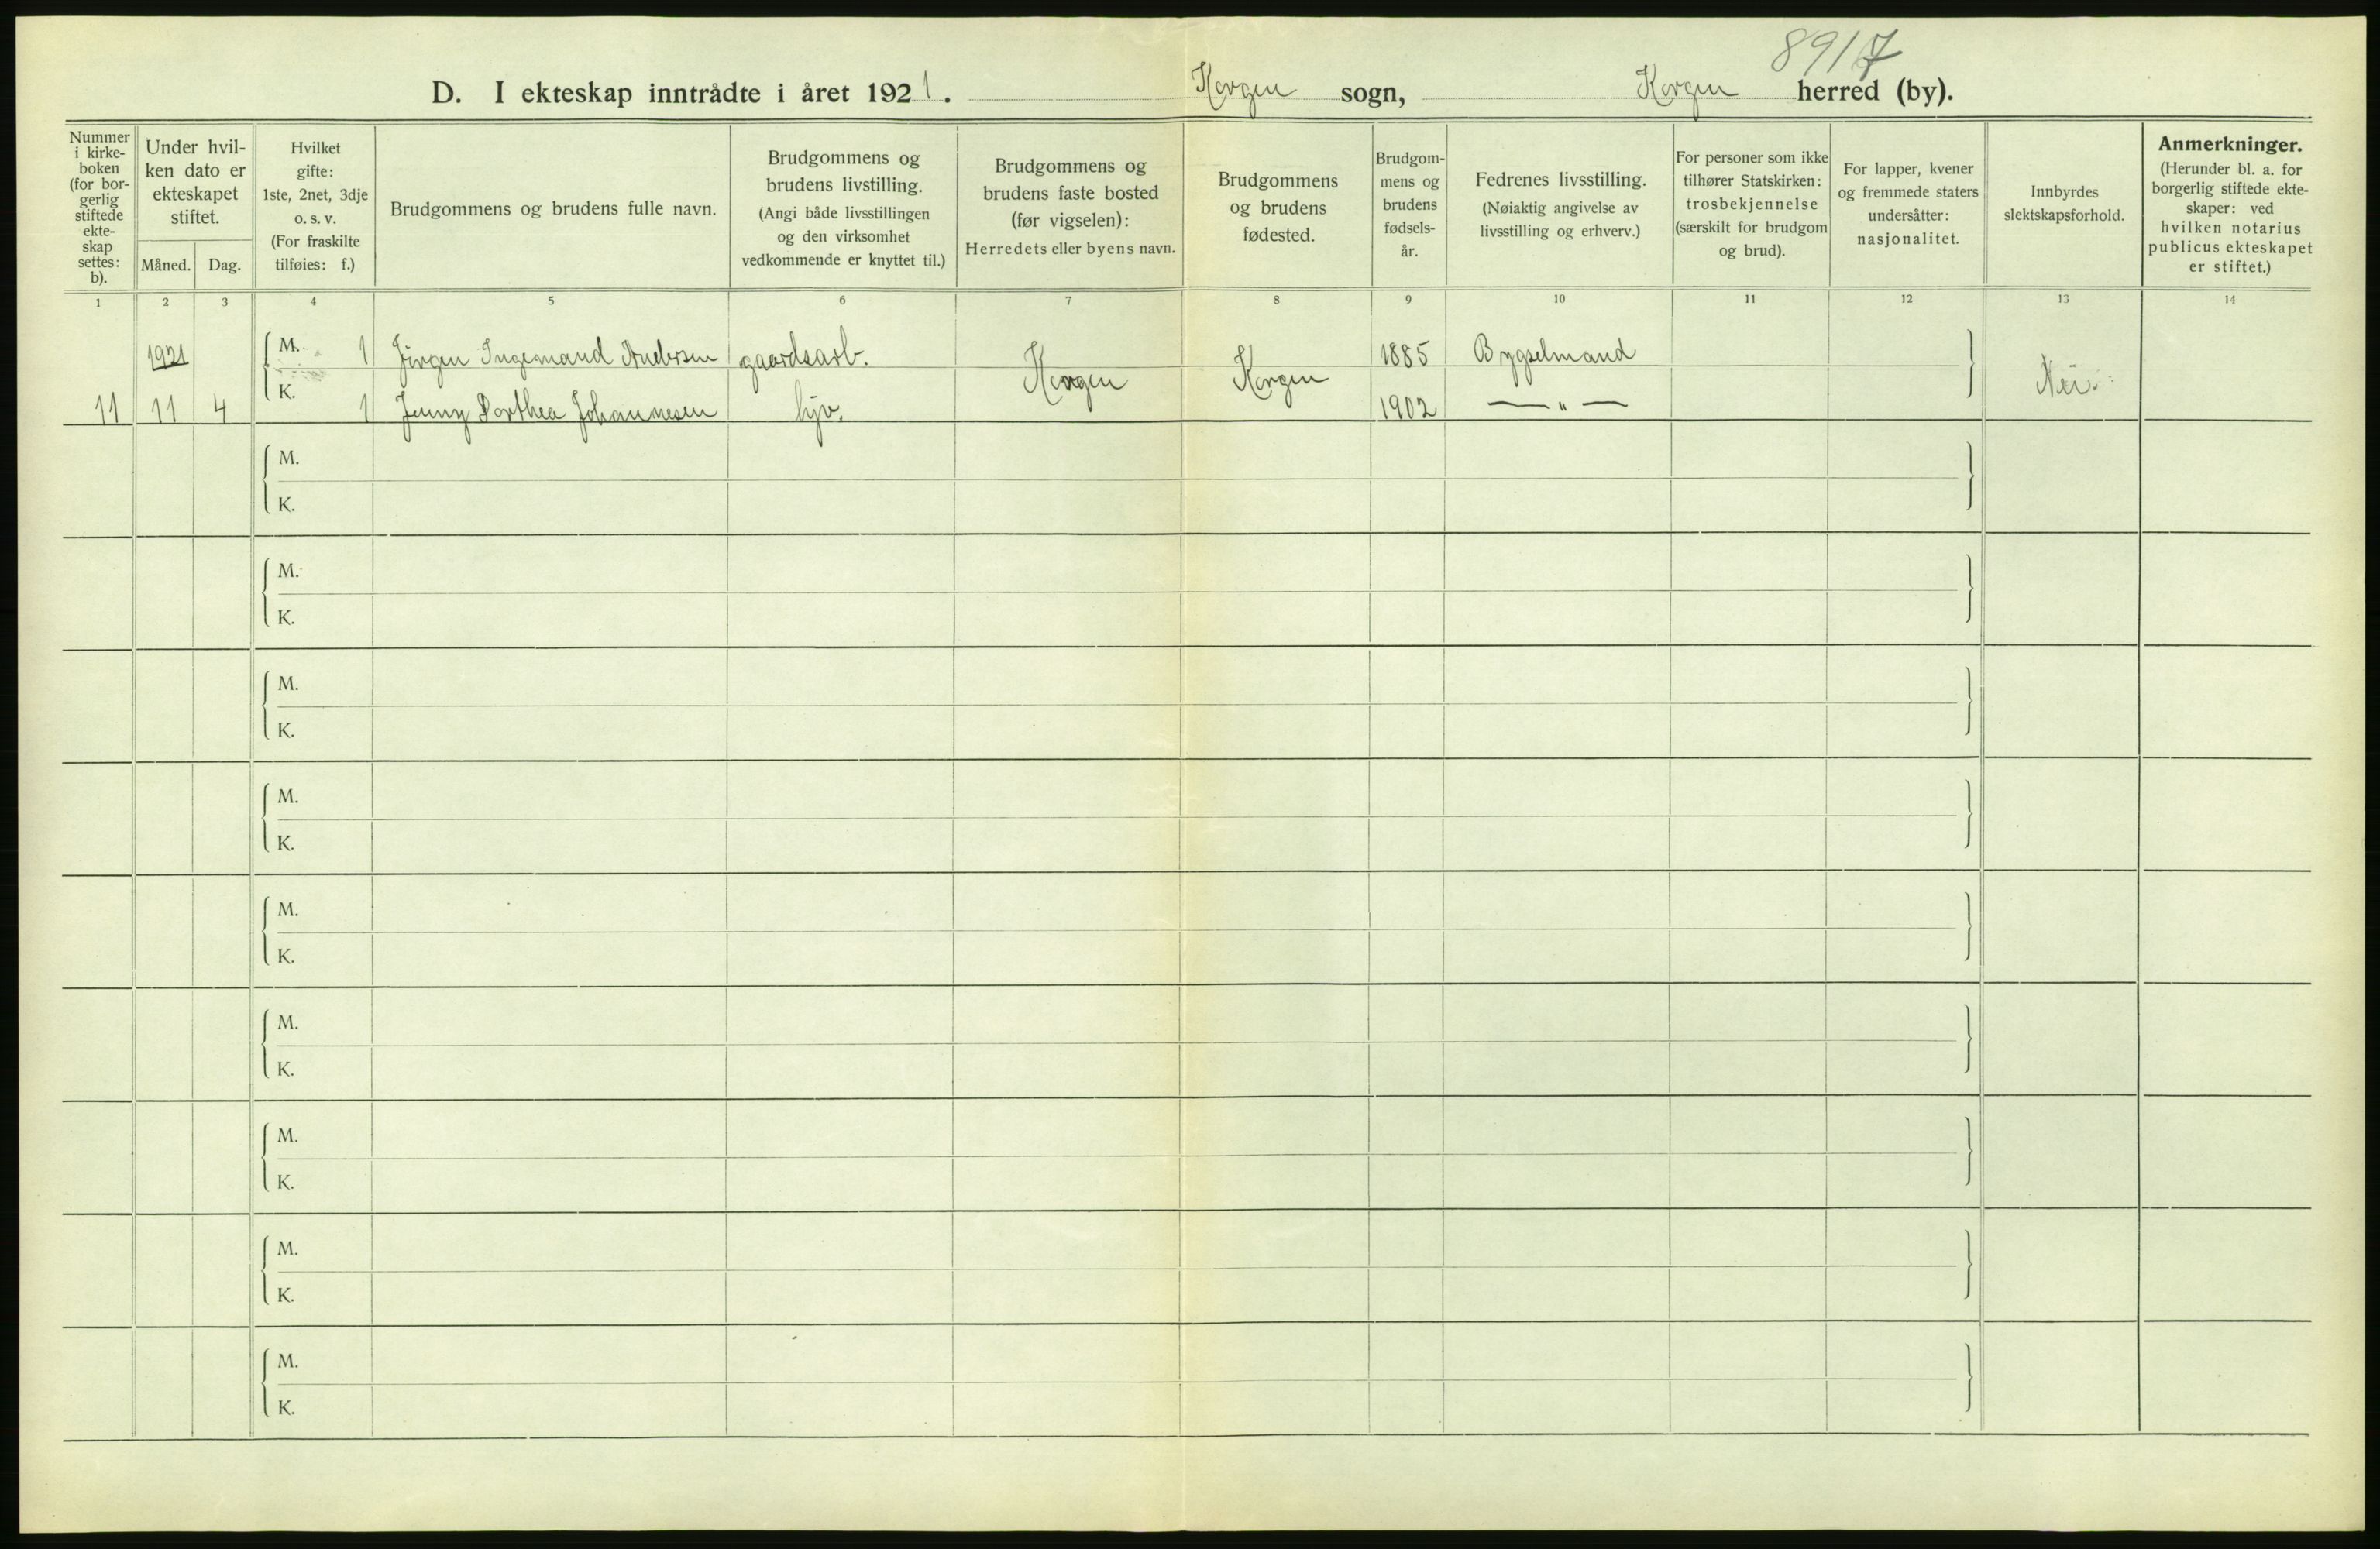 8917
D. I ekteskap inntrådte i året 1921. Korgen sogn, Korgen herred (by).
Nummer i kirke- boken (for bor- gerlig stiftede ekte- skap settes: b).
Under hvil- ken dato er ekteskapet stiftet.
Måned. Dag.
Hvilket gifte: 1ste, 2net, 3dje o. s. v. (For fraskilte tilføies: f.)
Brudgommens og brudens fulle navn.
Brudgommens og brudens livstilling. (Angi både livsstillingen og den virksomhet vedkommende er knyttet til.)
Brudgommens og brudens faste bosted (før vigselen): Herredets eller byens navn.
Brudgommens og brudens fødested.
Brudgom- mens og brudens fødsels- år.
Fedrenes livsstilling. (Nøiaktig angivelse av livsstilling og erhverv.)
For personer som ikke tilhører Statskirken: trosbekjennelse (særskilt for brudgom og brud).
For lapper, kvener og fremmede staters undersåtter: nasjonalitet.
Innbyrdes slektskapsforhold.
Anmerkninger. (Herunder bl. a. for borgerlig stiftede ekte- skaper: ved hvilken notarius publicus ekteskapet er stiftet.)
1 2 3 4 5 6 7 8 9 10 11 12 13 14
1921 M. 1 Jörgen Ingemand Andersen gaardsarb. Korgen Korgen 1885 Bygselmand Nei.
11 11 4 K. 1 Jenny Dorthea Johannesen hjv. 1902 — " —
M.
K.
M.
K.
M.
K.
M.
K.
M.
K.
M.
K.
M.
K.
M.
K.
M.
K.